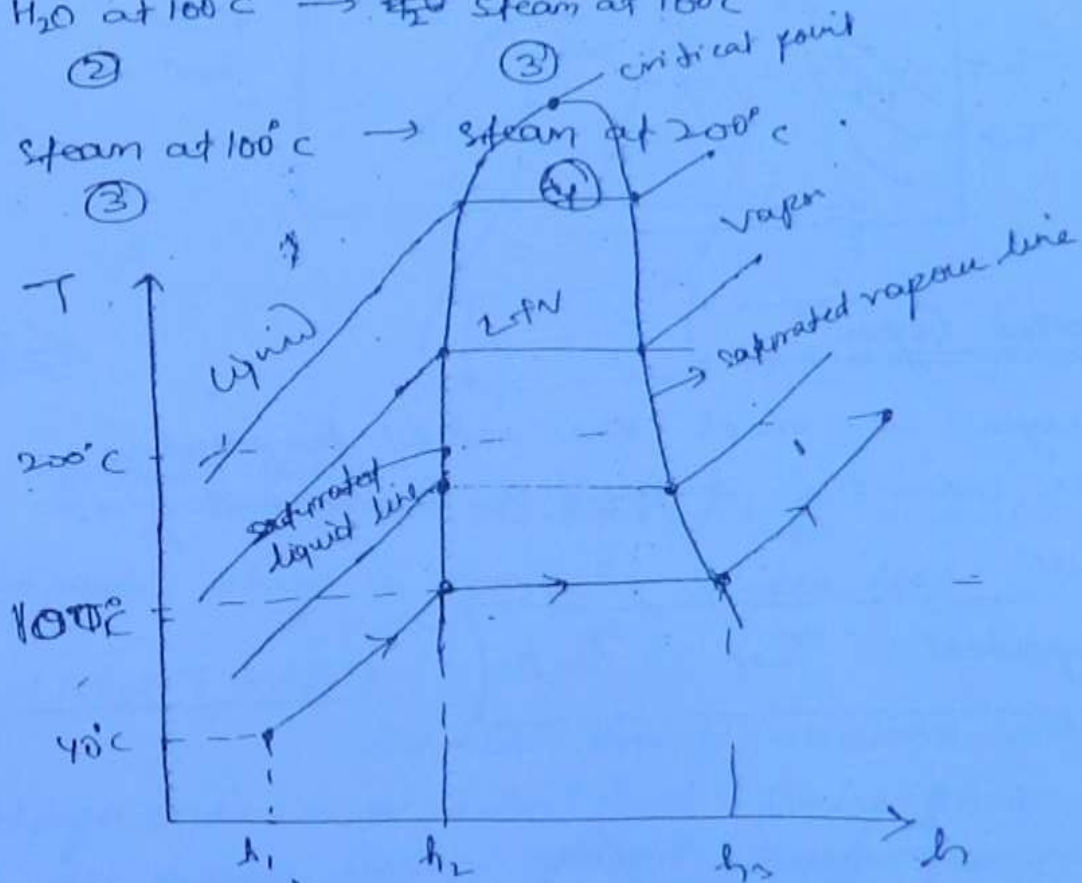 H₂O at 100°C → steam at 100°C
② ③
critical point
steam at 100°C → steam at 200°C .
③ ④
T
liquid
L+V
vapor
saturated vapour line
200°C
saturated
liquid line
100°C
40°C
h₁ h₂ h₃ h